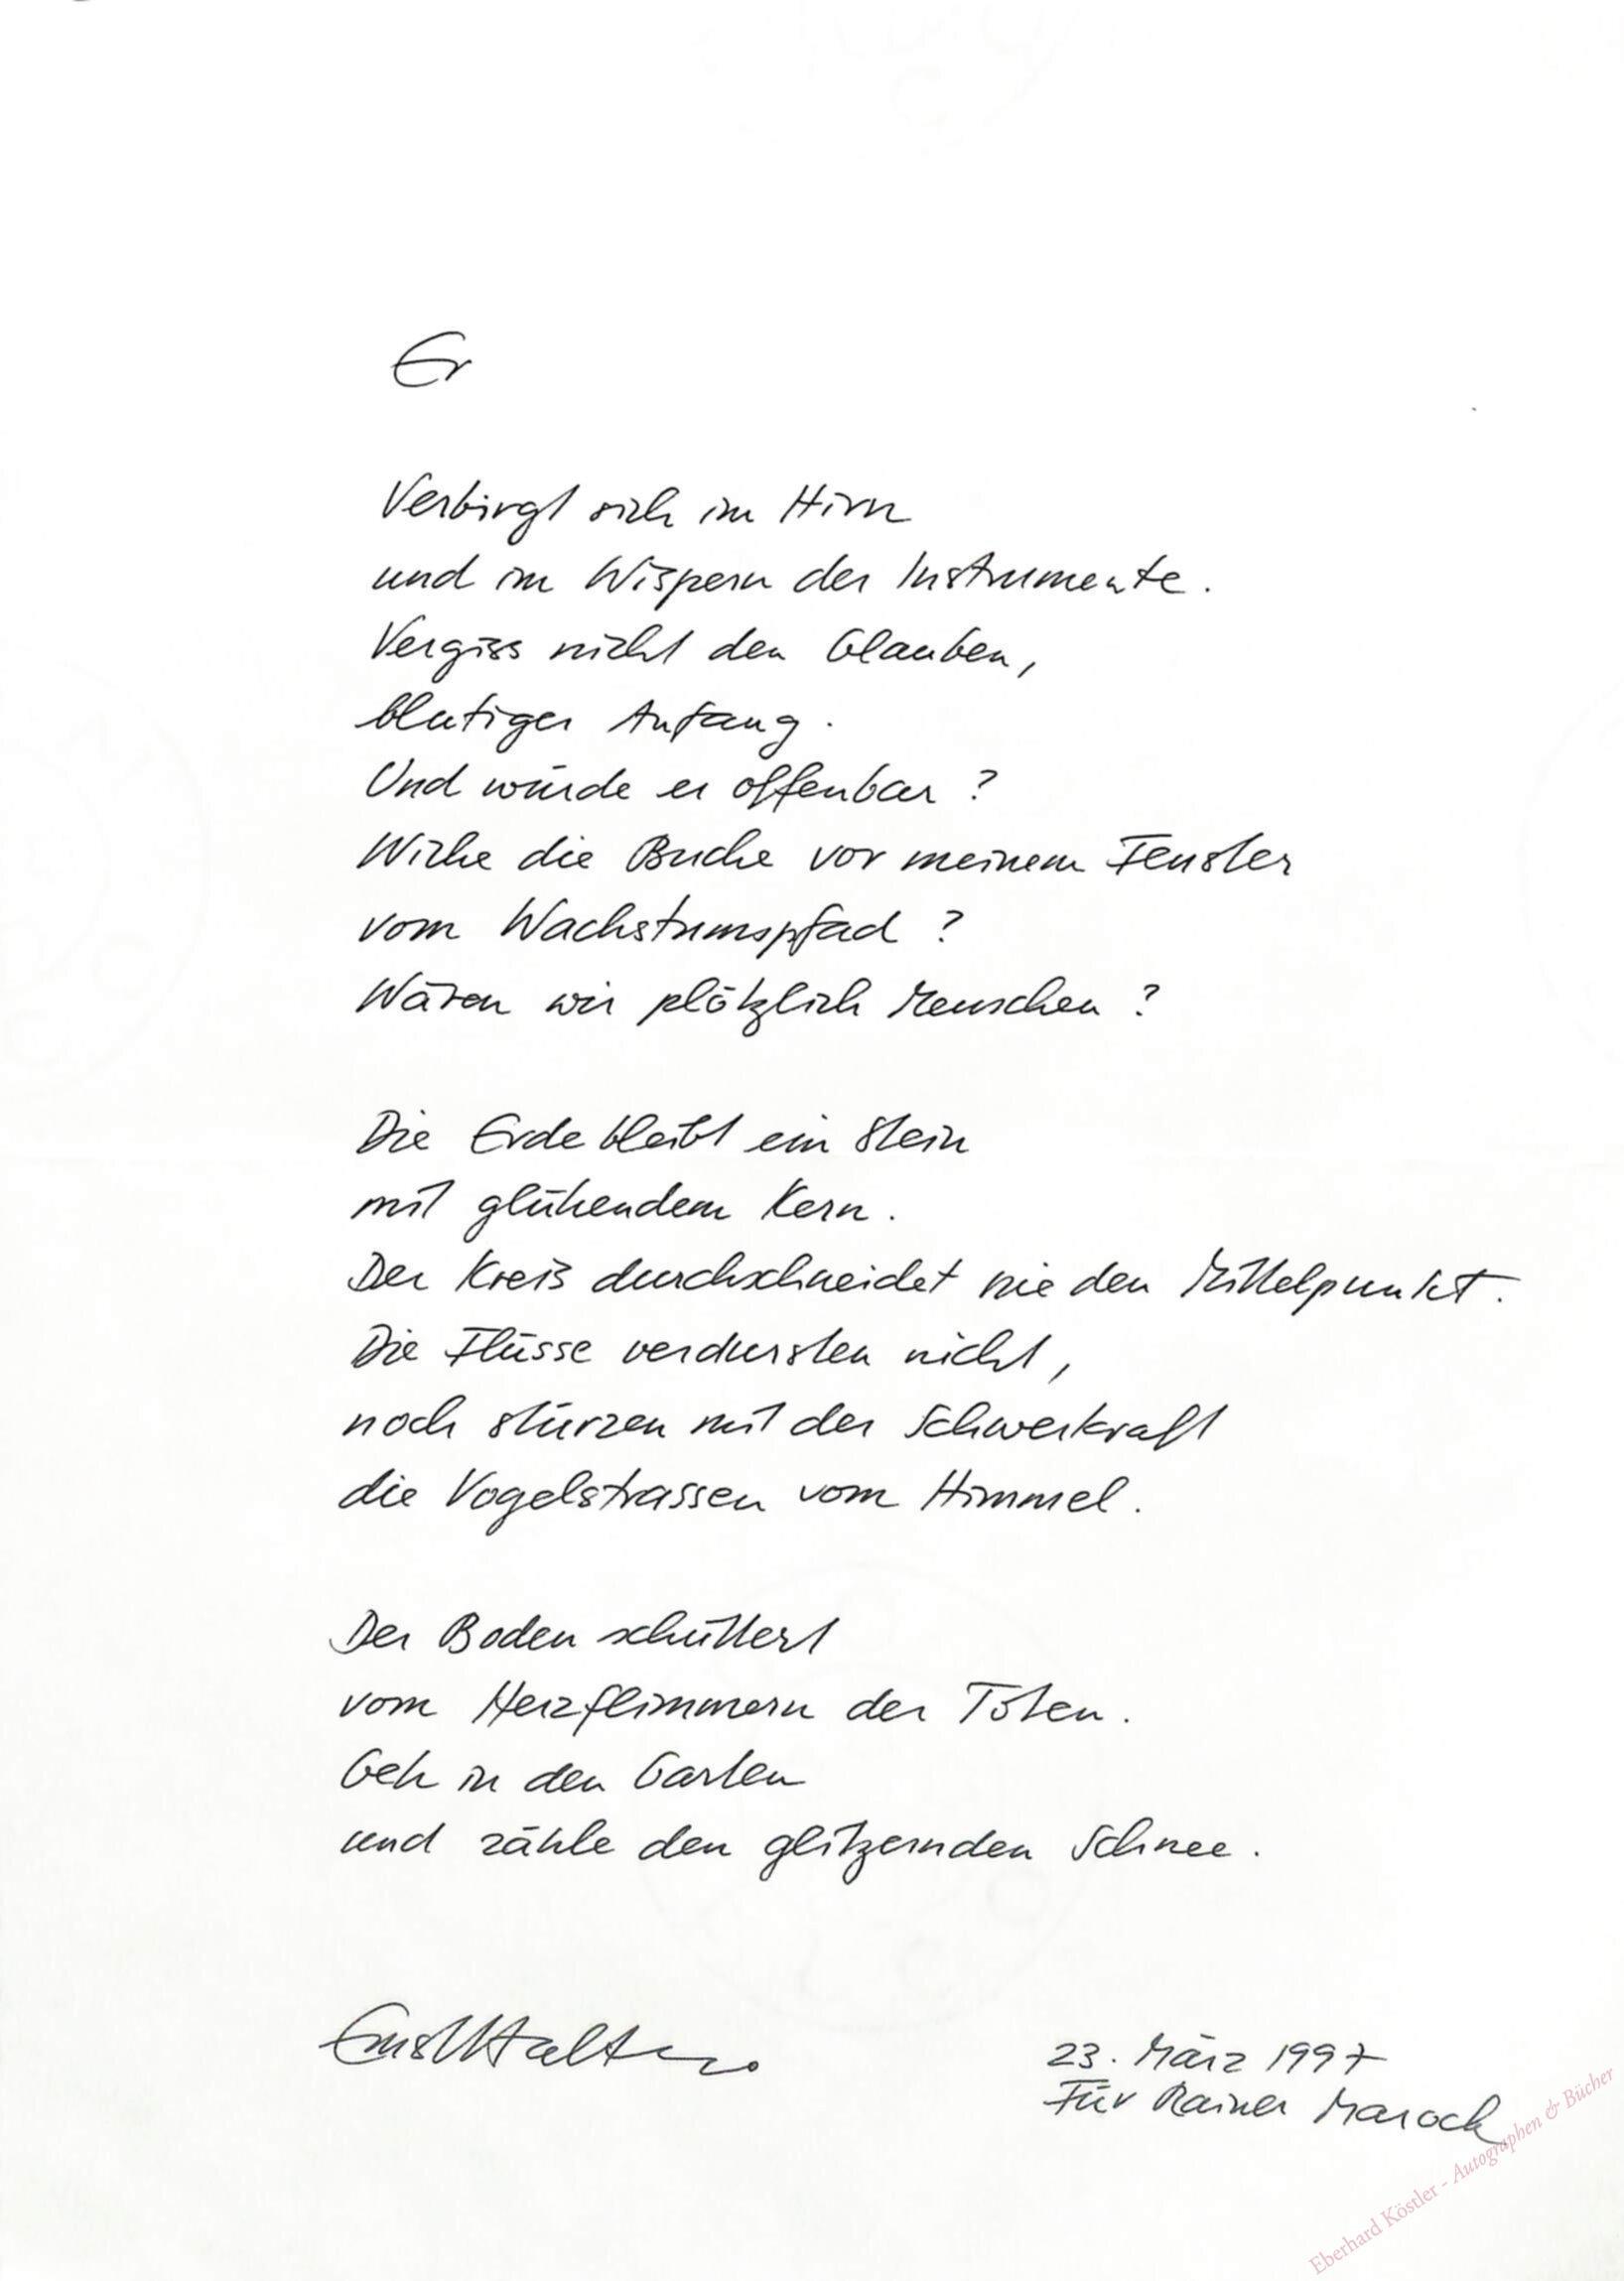 Er
Verbirgt sich im Hirn
und im Wispern der Instrumente.
Vergiss nicht den Glauben,
blutiger Anfang.
Und würde er offenbar?
Wiche die Buche vor meinem Fenster
vom Wachstumspfad?
Wären wir plötzlich Menschen?
Die Erde bleibt ein Stein
mit glühendem Kern.
Der Kreis durchschneidet nie den Mittelpunkt.
Die Flüsse verdursten nicht,
noch stürzen mit der Schwerkraft
die Vogelstrassen vom Himmel.
Der Boden schüttert
vom Herzflimmern der Toten.
Geh in den Garten
und zähle den glitzernden Schnee.
Ernst Halter
23. März 1997
Für Rainer Marock
Eberhard Köstler - Autographen & Bücher